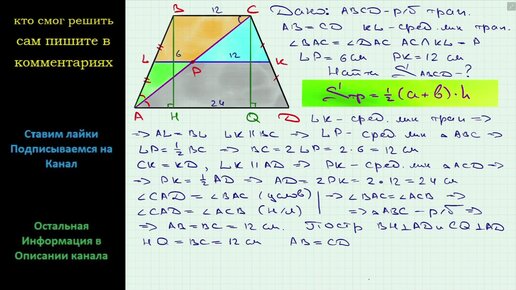 кто смог решить
сам пишите в
комментариях
Ставим лайки
Подписываемся на
Канал
Остальная
Информация в
Описании канала
B 12 C
L 6 P 12 K
A H 24 Q D
Дано: ABCD - р/б трап.
AB = CD KL - сред. лин трап.
∠BAC = ∠DAC AC∩KL = P
LP = 6 см PK = 12 см
Найти S ABCD - ?
Sтр = ½ (a + b) · h
LK - сред. лин трап ⇒
⇒ AL = BL LK ∥ BC ⇒ LP - сред. лин △ABC ⇒
LP = ½ BC ⇒ BC = 2LP = 2 · 6 = 12 см
CK = KD, LK ∥ AD ⇒ PK - сред. лин △ACD ⇒
⇒ PK = ½ AD ⇒ AD = 2PK = 2 · 12 = 24 см
∠CAD = ∠BAC (услов) | ⇒ ∠BAC = ∠ACB ⇒
∠CAD = ∠ACB (Н/Л) | ⇒ △ABC - р/б ⇒
⇒ AB = BC = 12 см. Постр BH⊥AD и CQ⊥AD
HQ = BC = 12 см AB = CD